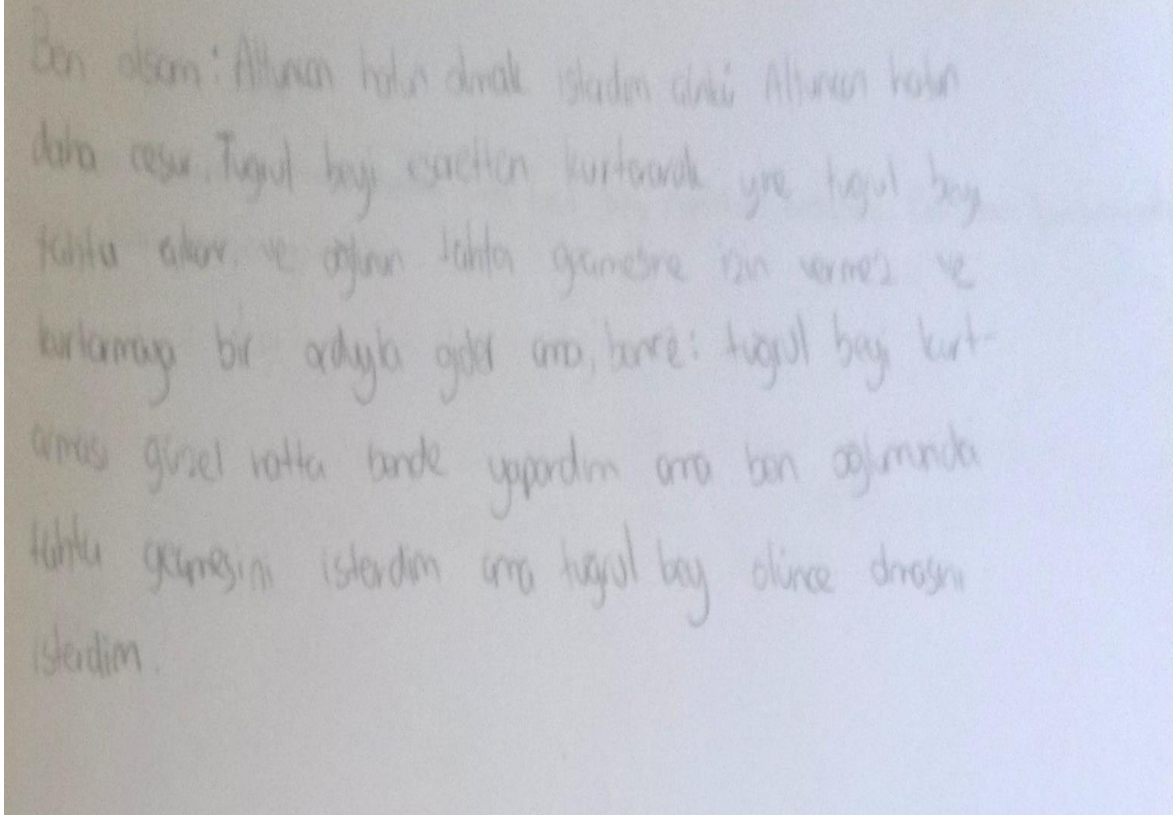 Ben olsam: Altuncan hatun olmak isterdim çünkü Altuncan hatun
daha cesur. Tuğrul beyi esaretten kurtararak yine tuğrul bey
tahta çıkar. ve oğlunun tahta geçmesine izin vermez ve
kurtarmaya bir orduyla gider ama, bence: tuğrul beyi kurt-
arması güzel hatta bende yapardım ama ben oğlumunda
tahta geçmesini isterdim ama tuğrul bey ölünce olmasını
isterdim.